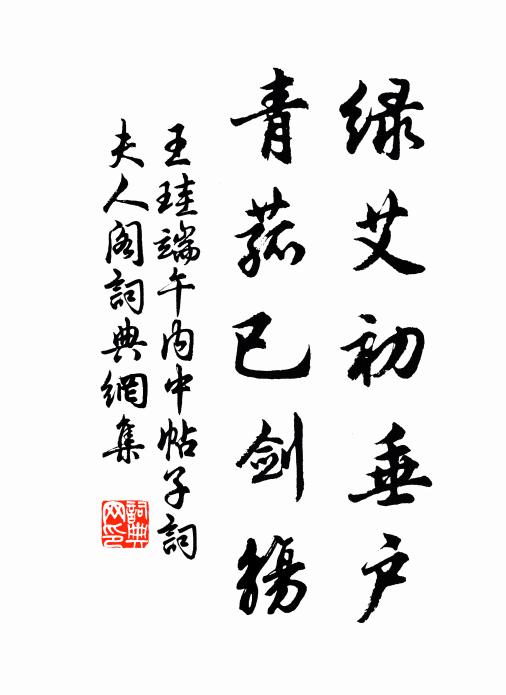 绿艾初垂户
青菰已剑觞
王珪端午内中帖子詞
夫人阁詞典網集
詞典
网印